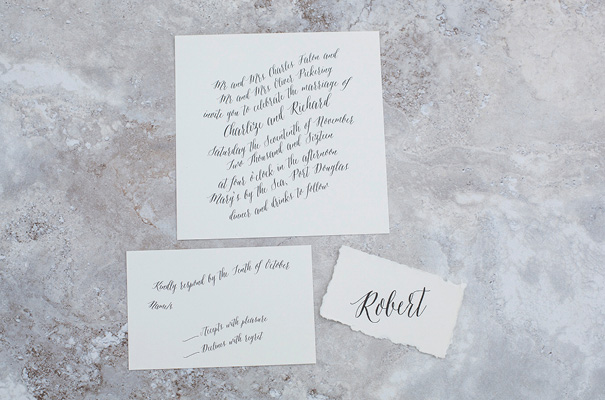 Mr and Mrs Charles Eaton and
Mr and Mrs Oliver Pickering
invite you to celebrate the marriage of
Charlize and Richard
Saturday the Seventeenth of November
Two Thousand and Sixteen
at four o'clock in the afternoon
Mary's by the Sea, Port Douglas
dinner and drinks to follow
Kindly respond by the Tenth of October
Name/s
Accepts with pleasure
Declines with regret
Robert